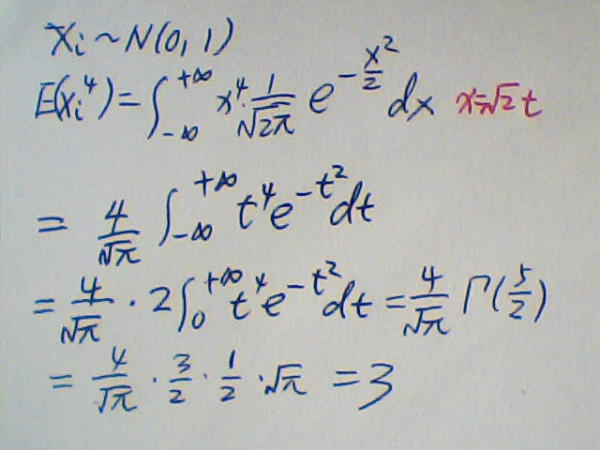 Xi ~ N(0, 1)
E(xi⁴) = ∫₋∞⁺∞ x⁴ · 1/√(2π) e^(-x²/2) dx x=√2 t
= 4/√π ∫₋∞⁺∞ t⁴e^(-t²) dt
= 4/√π · 2∫₀⁺∞ t⁴e^(-t²) dt = 4/√π Γ(5/2)
= 4/√π · 3/2 · 1/2 · √π = 3